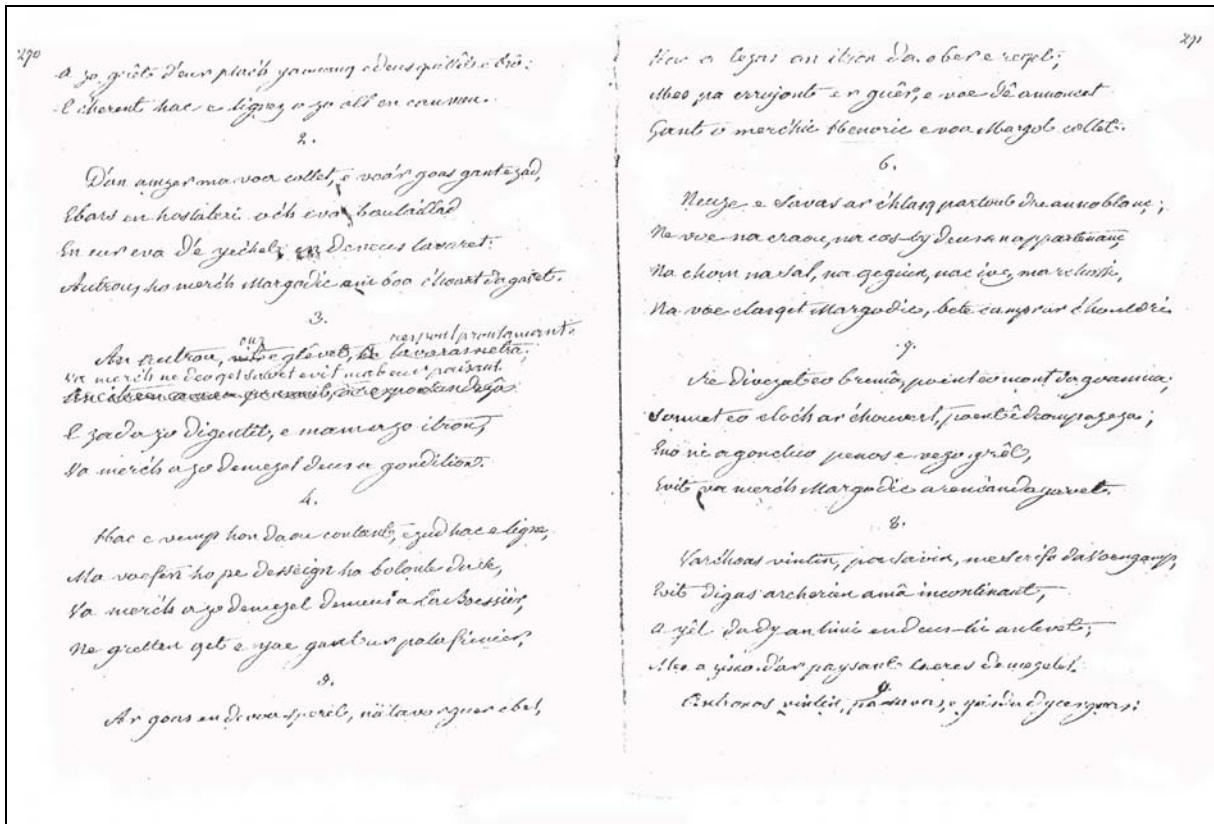 290
a zo grêt d'eur plach yaouang edeus quittêt e brô:
E c'herent hac e lignez a zo oll en
2.
D'an amzer ma voa collet, e voa'r goas gant e zad,
Ebars en hostaleri och eva boutaillad
En eur eva d'e yec'het, en deveus lavaret:
Autrou, ho merc'h Margodic am boa c'hoant da gavet.
3.
ouz respont prontamant
An autrou, e glevet, lavaras netra;
Va merc'h ne deo get savet evit mab eur paisant.
E zad a zo digentil, e mam a zo itron,
Va merc'h a zo demezel deus a gondition.
4.
Hac e vemp hon daou contant, e zud hac e ligne,
Ma voefen ho pe desseign ha bolonte Doue,
Va merc'h a zo demezel demeus a Boessier,
Ne gretten get e yae gant ur palafrinier,
5.
Ar goas en devoa speret, na lavar guer ebet,
291
lezas an itron da ober e reget;
Mes pa errujont er guêr, e voe dê annoncet
Gant o merc'hic Henoric e voa Margot collet.
6.
Neuze e savas ar c'hlasq partout dre an noblanç;
Ne voe na craou, na cos-ty deus an appartenanç
Na chom na sal, na geguin, nac ive, marchossi,
Na voe clasqet Margodic, bete campr ar c'houldri.
7.
Re divezat eo bremâ, poent eo mont da goannia;
Sonnet eo cloch ar c'houvert, poent ê dromp azeza;
Eno ni a gonclu penos e vezo grêt,
Evit va merc'h Margodic a renean da gavet.
8.
Varc'hoas vintin, pa savin, me scrifo da Voengamp,
Evit digas archerien amâ incontinant,
a yêl da dy an hini en deus-hi anlevet;
Mar a d'ar paysant laeres demezelet.
vintin,